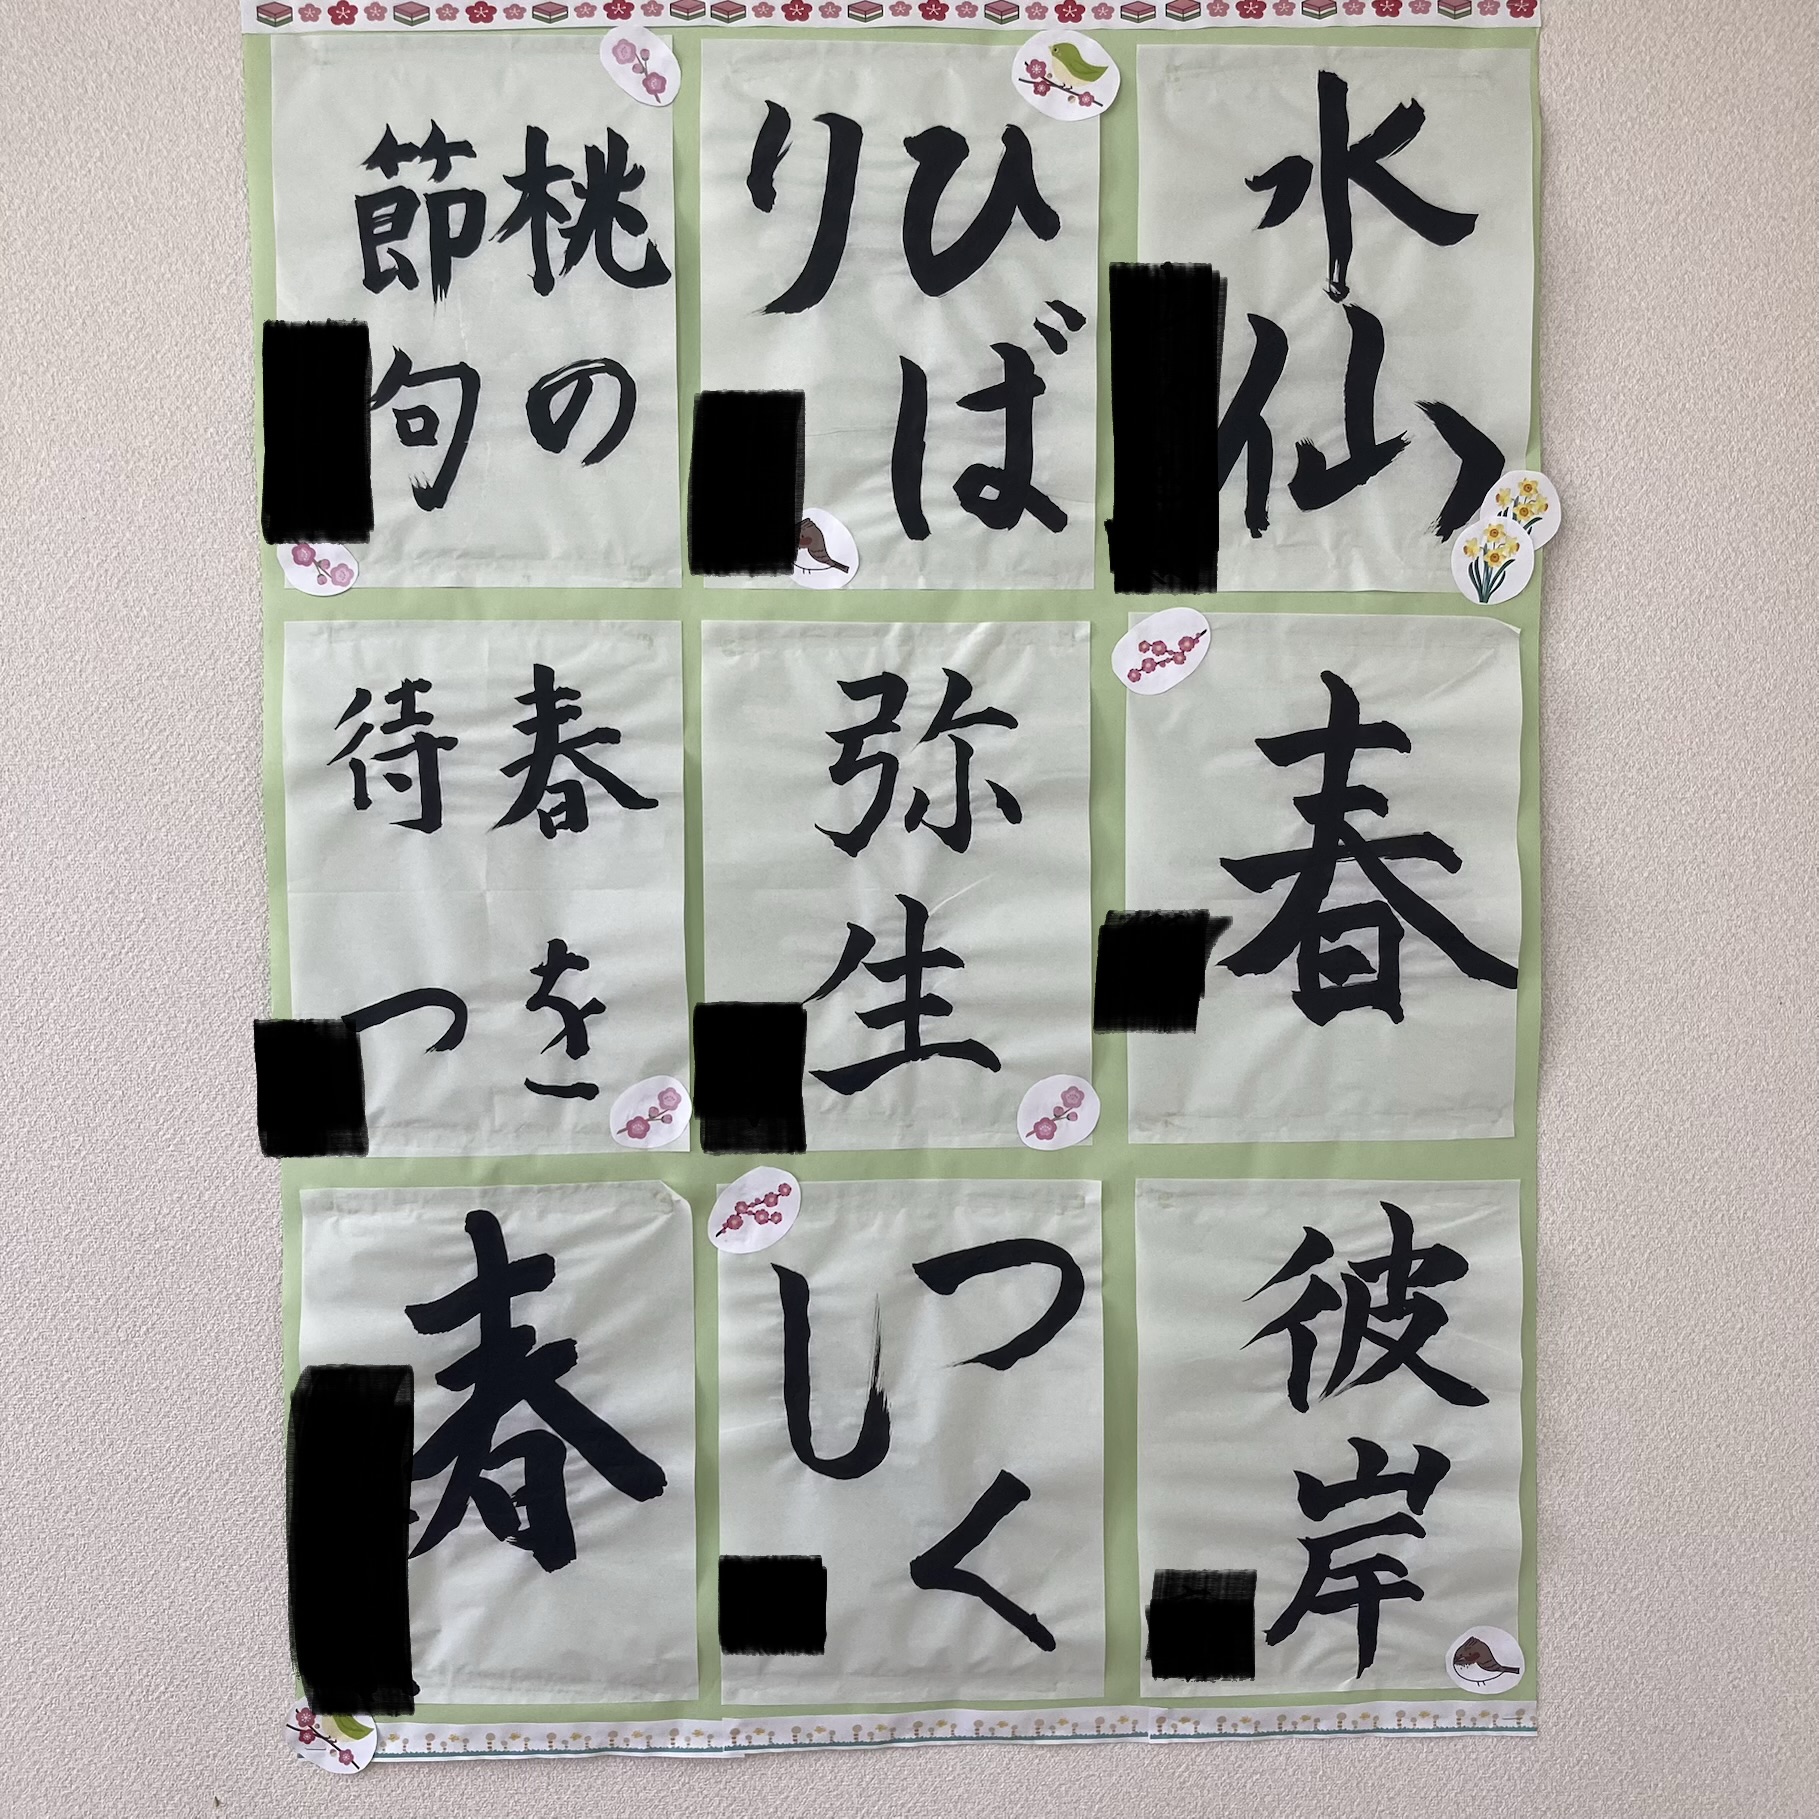 水仙
ひば
り
桃の
節句
春
弥生
春を
待つ
彼岸
つく
し
春